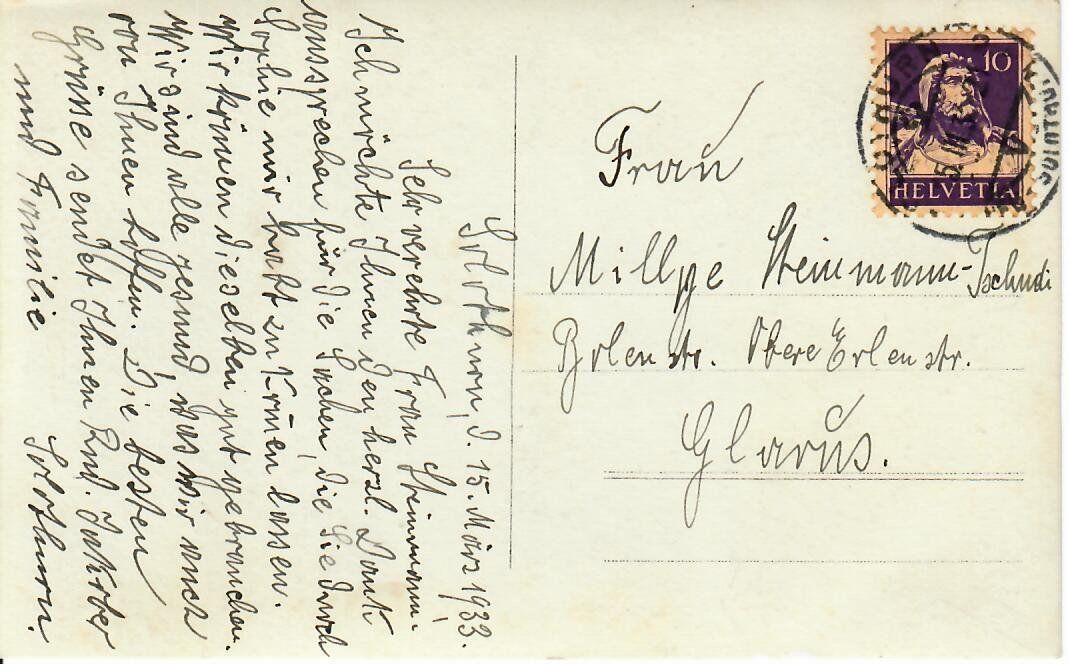 Solothurn, d. 15. März 1933.
Sehr verehrte Frau Steinmann!
Ich möchte Ihnen den herzl. Dank
aussprechen für die Sachen, die Sie durch
Sophie mir habt zu kommen lassen.
Wir können dieselben gut gebrauchen.
Wir sind alle gesund, was wir auch
von Ihnen hoffen. Die besten
Grüsse sendet Ihnen Rud.
und Familie Solothurn.
Frau
Steinmann-Tschudi
Obere Erlenstr.
Glarus.
10
HELVETIA